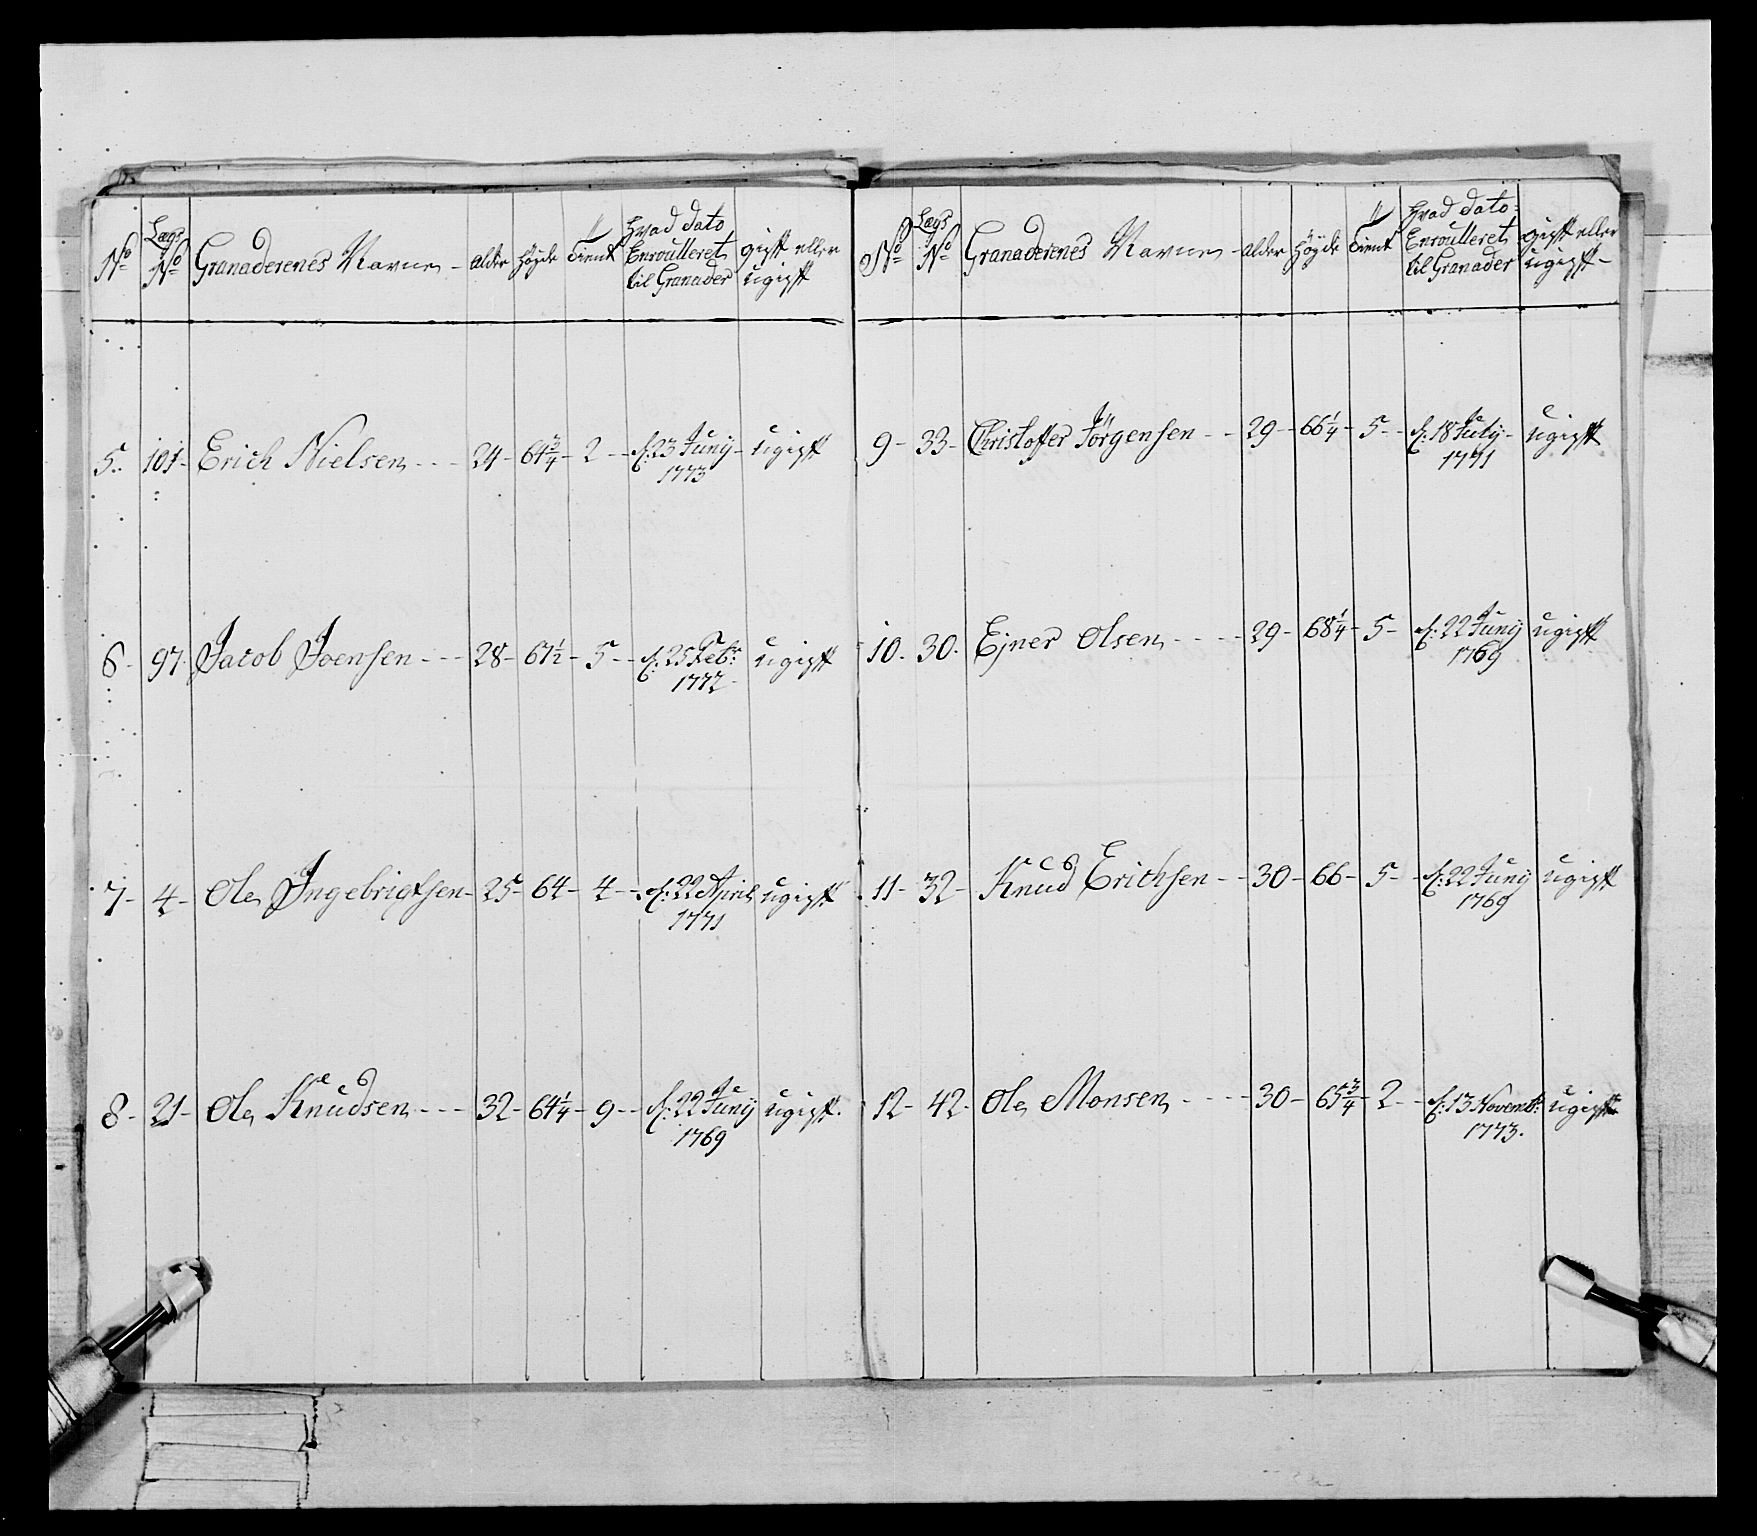 No Lægs No Granaderenes Navne - alder højde tient hvad dato Enroulleret til Granader gift eller ugift
5. 101- Erich Nielsen --- 24- 64 3/4- 2 -- d: 23 Juny 1773 - ugift
6- 97 Jacob Joensen --- 28- 67 1/2- 5 -- d: 25 Febr: 1772 - ugift
7- 4- Ole Ingebrigtsen- 25- 64- 4 -- d: 22 April 1771 ugift
8- 21- Ole Knudsen --- 32- 64 1/4- 9 -- d: 22 Juny 1769 ugift.
No Lægs No Granaderenes Navne - alder højde tient hvad dato Enroulleret til Granader gift eller ugift-
9- 33- Christoffer Jörgensen -- 29- 66 1/4- 5 -- d: 18 July 1771 - ugift
10. 30. Ejner Olsen ---- 29- 68 1/4- 5- d: 22 Juny 1769 ugift
11- 32- Knud Erichsen -- 30- 66- 5 -- d: 22 Juny 1769 ugift
12- 42- Ole Monsen ---- 30- 65 3/4- 2 -- d: 13 Novemb: 1773. ugift